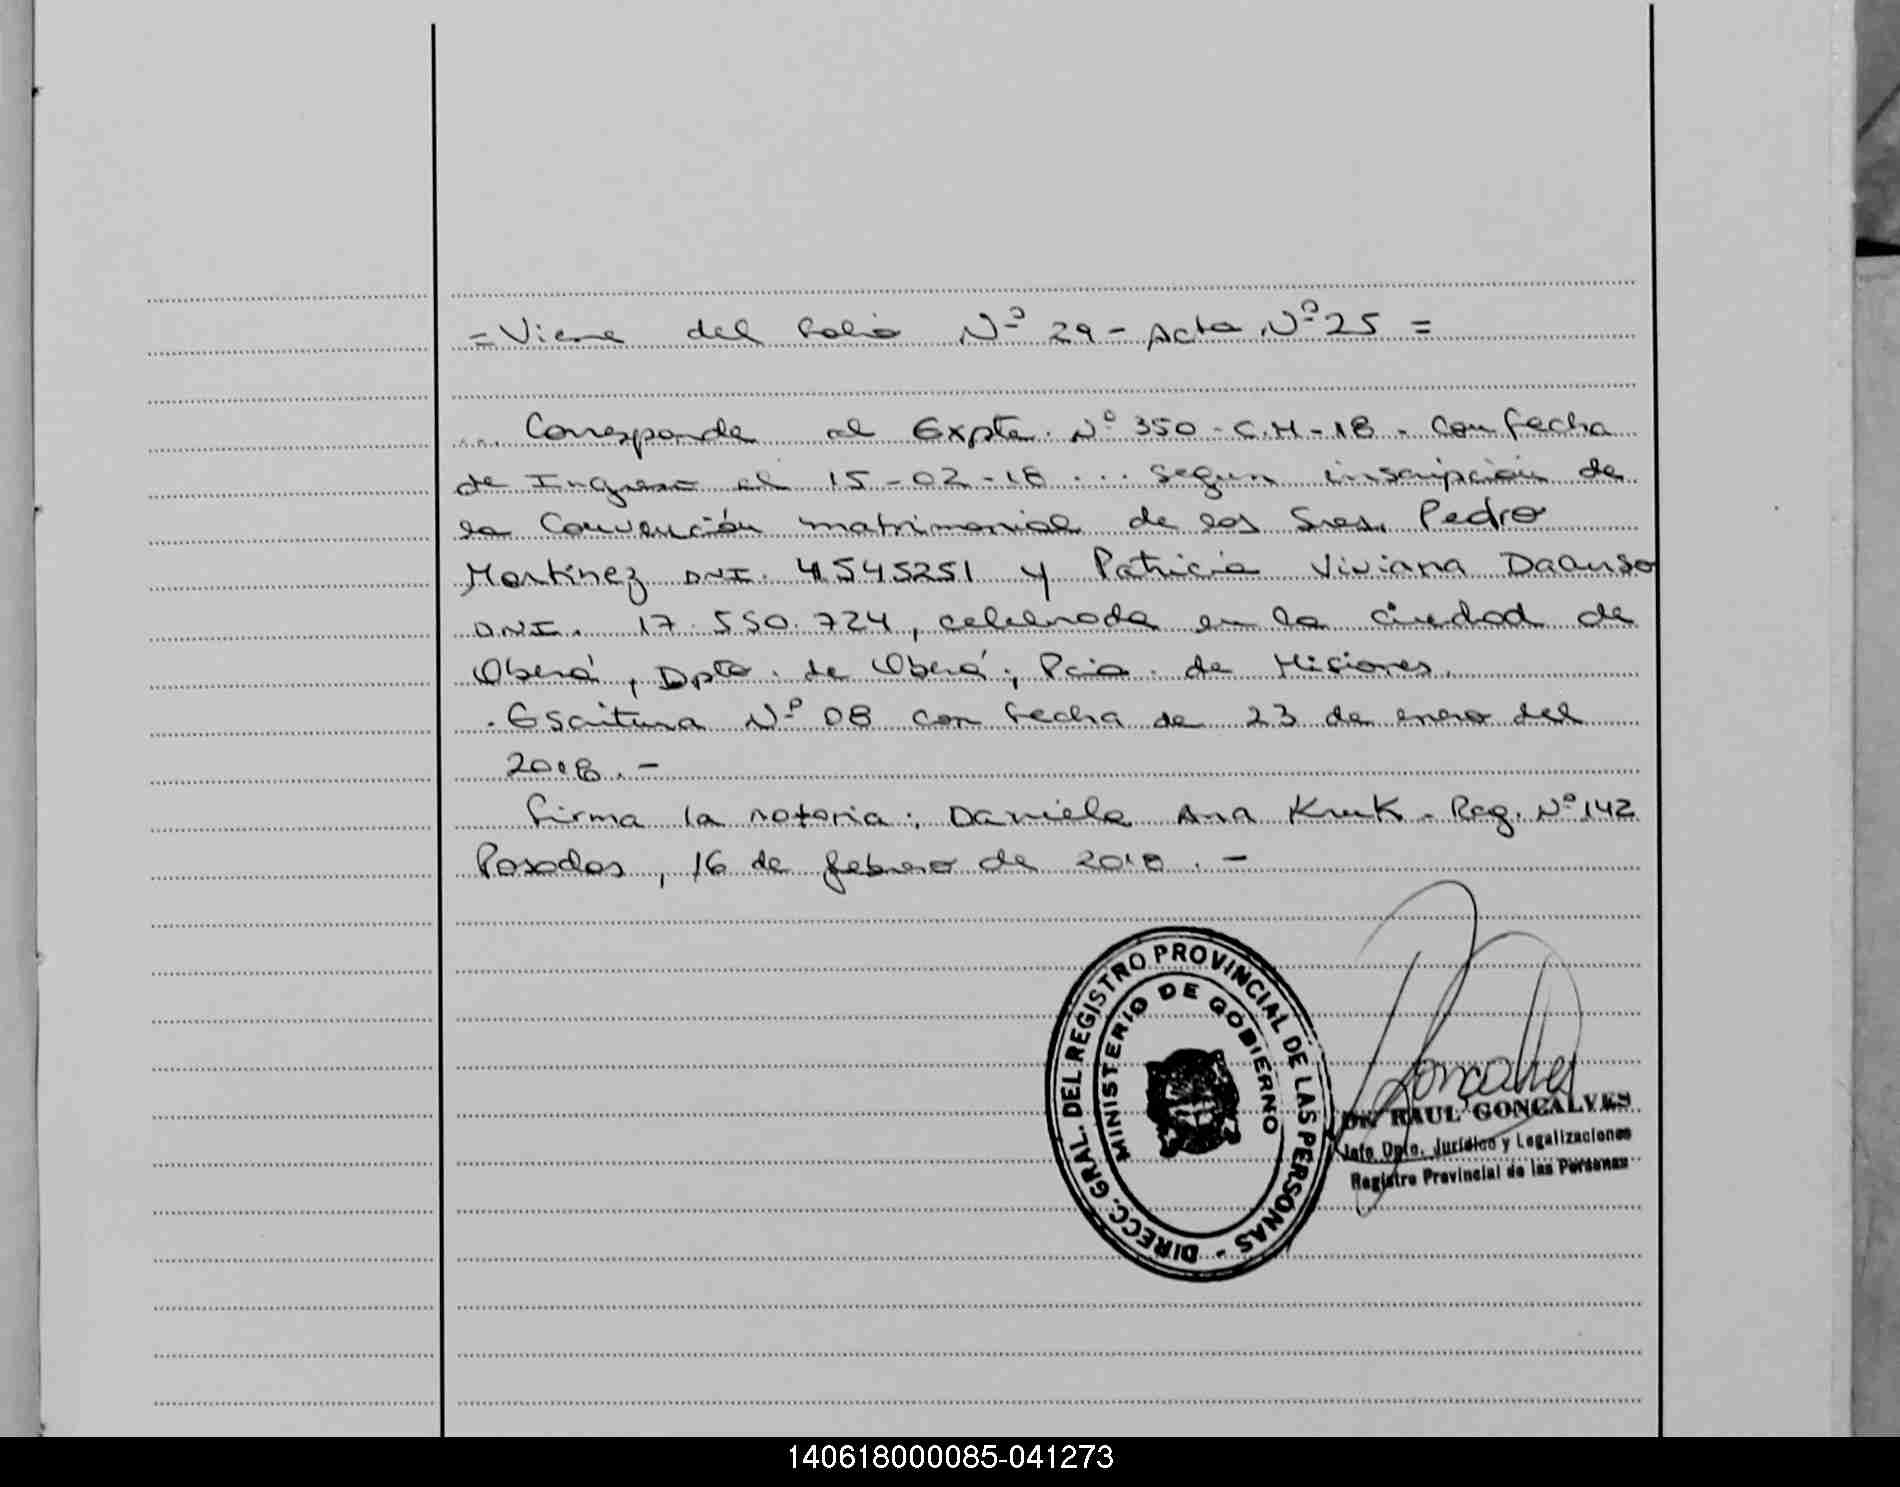 = Viene del folio Nº 29 - Acta Nº 25 =
... Corresponde al Expte. Nº 350 - C.M - 18 - con fecha
de Ingreso al 15-02-18 ... segun inscripción de
la Convención matrimonial de los Sres. Pedro
Martínez DNI. 4545251 y Patricia Viviana
DNI. 17.550.724, celebrada en la ciudad de
Oberá, Dpto. de Oberá; Pcia. de Misiones.
. Escritura Nº 08 con fecha de 23 de enero del
2018. -
firma la notaria: Daniela Ana Kruk - Reg. Nº 142
Posadas, 16 de febrero de 2018. -
DIRECC. GRAL. DEL REGISTRO PROVINCIAL DE LAS PERSONAS -
MINISTERIO DE GOBIERNO
Gonçalves
Dr. RAUL GONCALVES
Jefe Dpto. Jurídico y Legalizaciones
Registro Provincial de las Personas
140618000085-041273